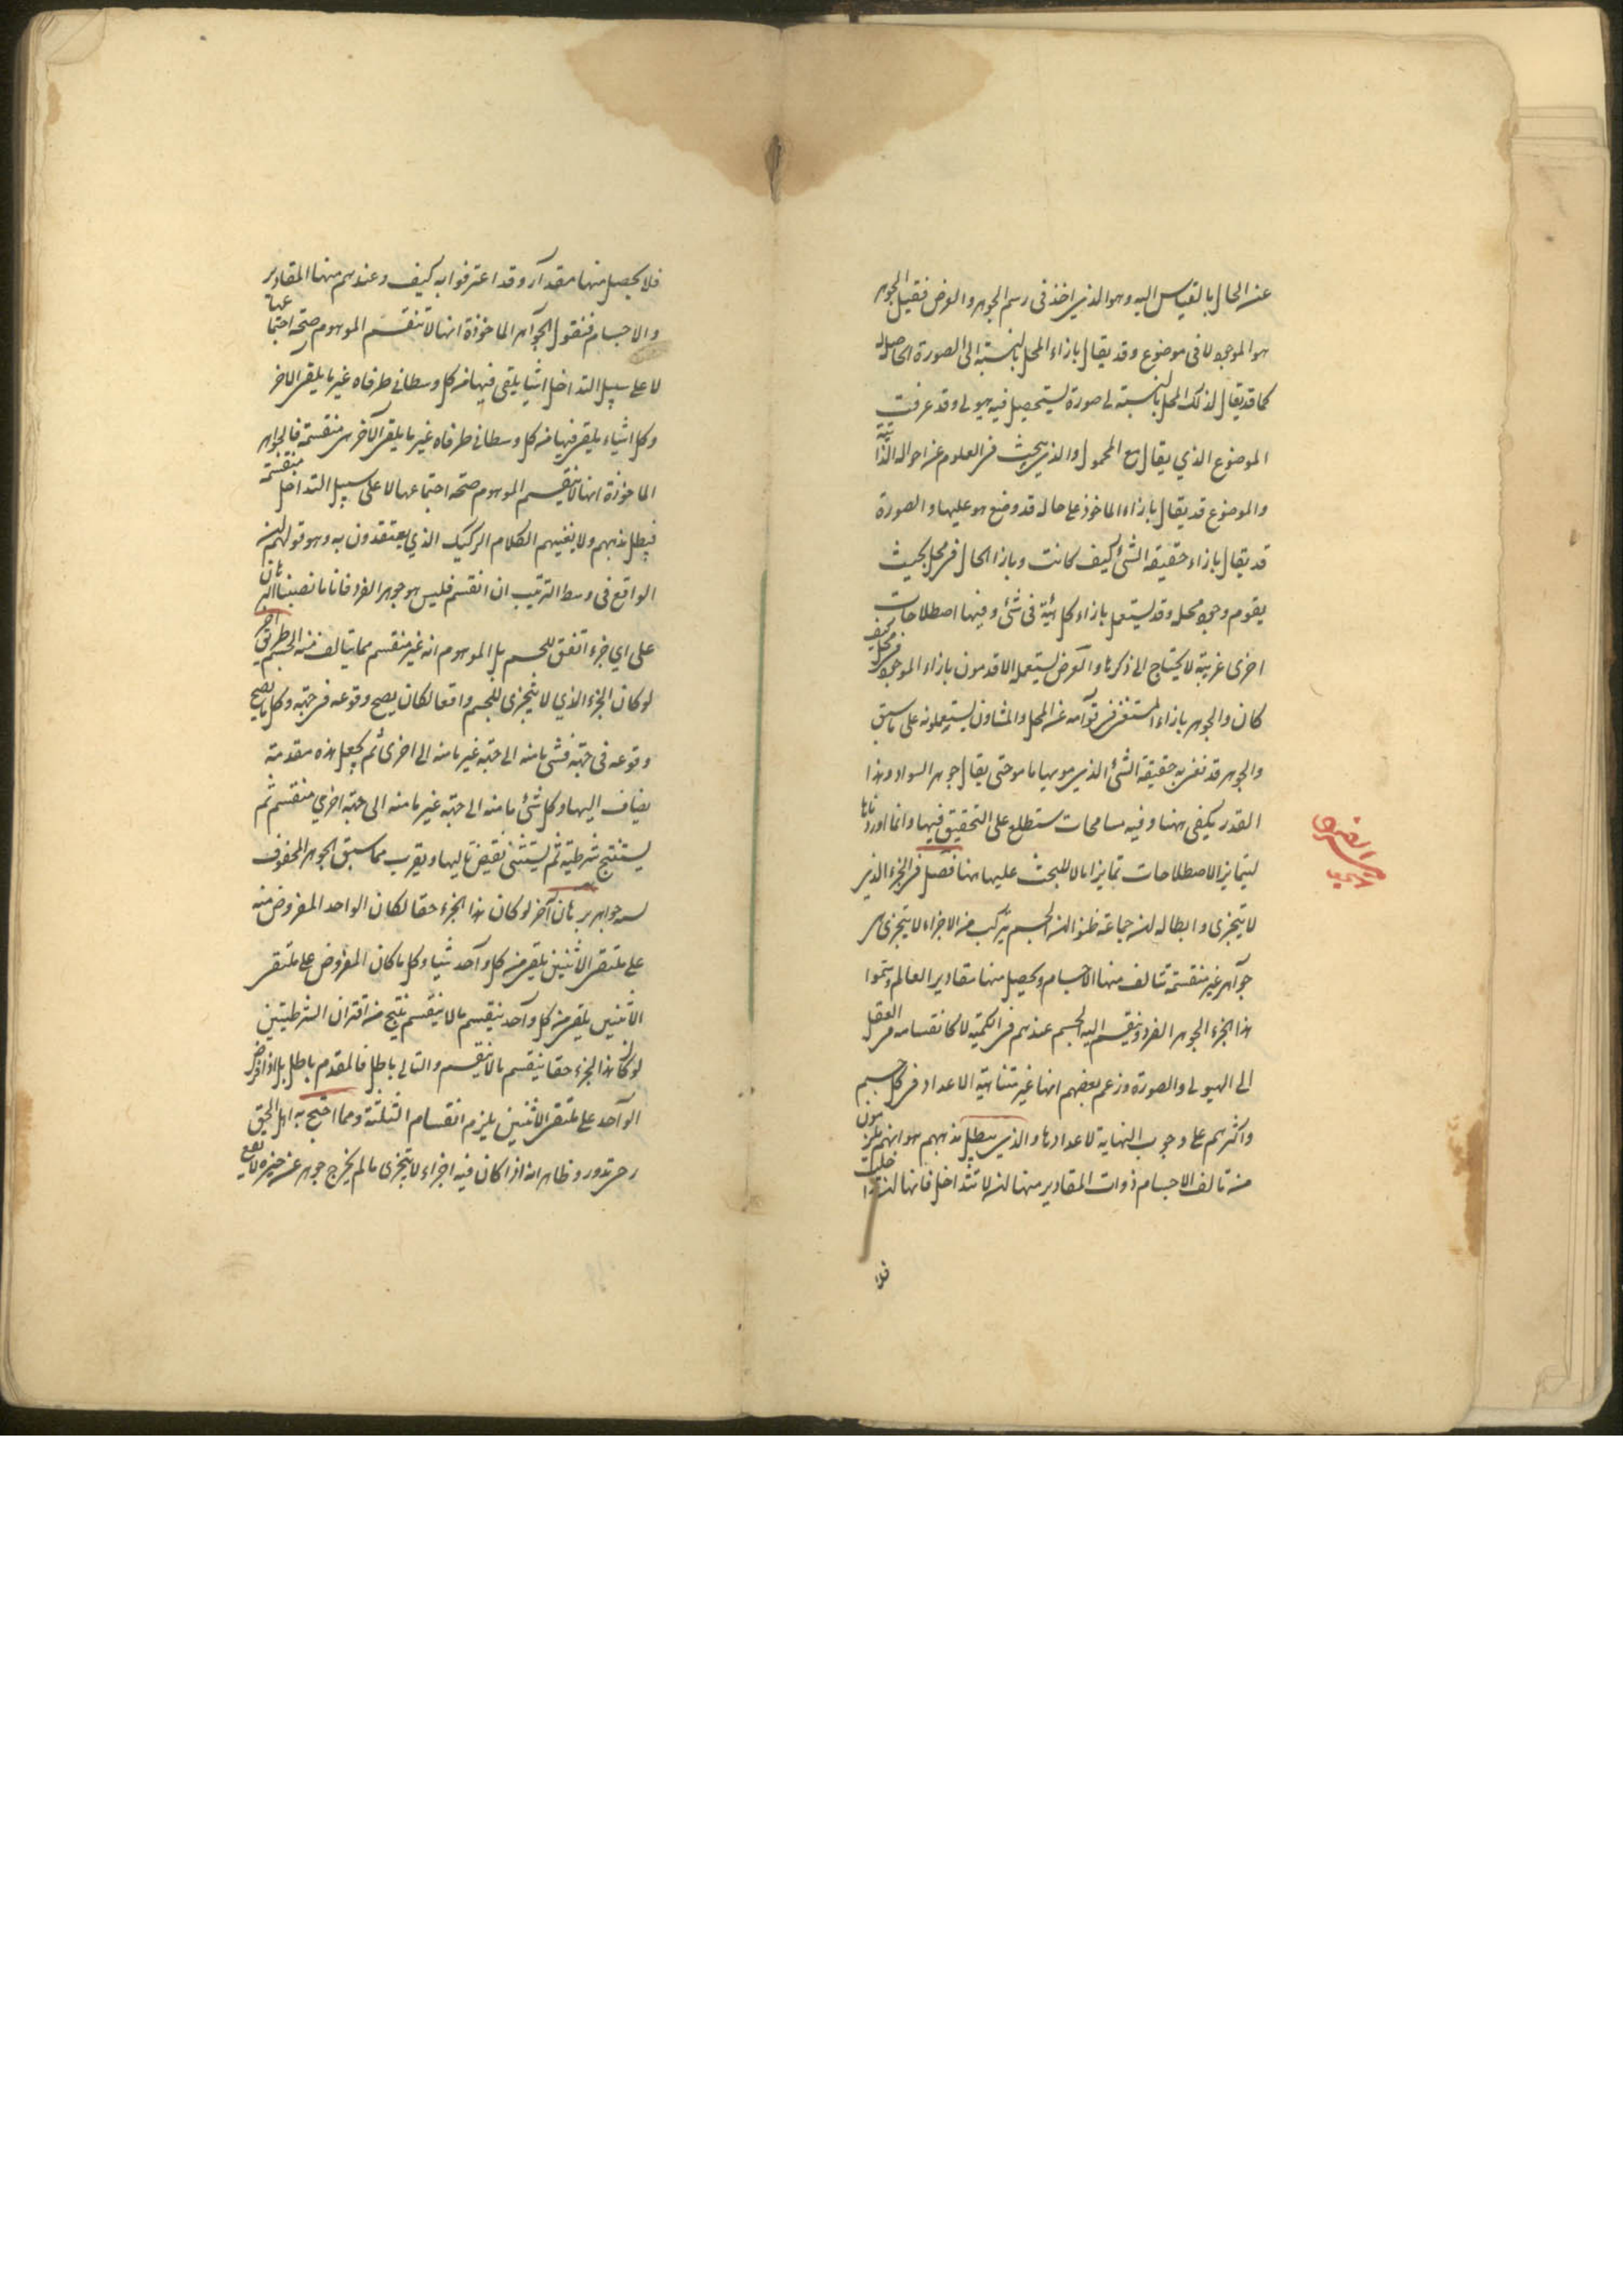 عن الحال بالقياس اليه وهو الذي اخذ في رسم الجوهر والعرض فقيل الجوهر
هو الموجود لا في موضوع وقد يقال بازاء المحل بالنسبة الى الصورة الحاصلة
كما قد يقال لذلك المحل بالنسبة لى صورة يستحصل فيه هيولى وقد عرفت
الموضوع الذي يقال مع المحمول والذي يبحث في العلوم عن احواله الذاتية
والموضوع قد يقال بازاء الماخوذ على حالة قد وضع هو عليها والصورة
قد يقال بازاء حقيقة الشئ كيف كانت وبازا الحال في محل بحيث
يقوم وجود محله وقد يستعمل بازاء كل هيئة في شئ وفيها اصطلاحات
اخرى غريبة لا يحتاج الى ذكرها والعرض يستعمله الاقدمون بازاء الموجود في محل كيف
كان والجوهر بازاء المستغنى في قوامه عن المحل والمشاؤن يستعملونه على ما سبق
والجوهر قد نعنى به حقيقة الشئ الذي هو بها ما هو حتى يقال جوهر السواد وهذا
القدر يكفى ههنا وفيه مسامحات ستطلع على التحقيق فيها وانما اوردناها
ليتمايز الاصطلاحات تمايزا ما لا للبحث عليها ههنا فصل في الجزء الذي
لا يتجزى وابطاله ان جماعة ظنوا ان الجسم يتركب من الاجزاء لا يتجزى هى
جواهر غير منقسمة تتالف منها الاجسام ويحصل منها مقادير العالم وسموا
هذا الجزء الجوهر الفرد وينقسم اليه الجسم عندهم في الكمية لا كانقسامه في العقل
الى الهيولى والصورة وزعم بعضهم انها غير متناهية الاعداد في كل جسم
واكثرهم على وجوب النهاية لاعدادها والذي يبطل مذهبهم هو انهم يلزمون
من تالف الاجسام ذوات المقادير منها ان لا تتداخل فانها ان تداخلت
فلا
فلا يحصل منها مقدار وقد اعترفوا به كيف وعندهم منها المقادير
والاجسام فنقول الجواهر الماخوذة انها لا تنقسم الموهوم صحة اجتماعها
لا على سبيل التداخل اشيا يلقى فيها من كل وسطانى طرفاه غير ما يلقى الاخر
وكل اشياء يلقى فيها من كل وسطانى طرفاه غير ما يلقى الآخر هى منقسمة فالجواهر
الماخوذة انها لا تنقسم الموهوم صحة اجتماعها لا على سبيل التداخل منقسمة
فبطل مذهبهم ولا يغنيهم الكلام الركيك الذي يعتقدون به وهو قولهم ان
الواقع في وسط الترتيب ان انقسم فليس هو جوهر الفرد فانا ما نصبنا البرهان
على اي جزء اتفق للجسم بل الموهوم انه غير منقسم مما يتالف منه الجسم طريق اخر
لو كان الجزء الذي لا يتجزى للجسم واقعا لكان يصح وقوعه في جهة وكل ما يصح
وقوعه في جهة فشى ما منه الى جهة غير ما منه الى اخرى ثم يجعل هذه مقدمة
يضاف اليها وكل شئ ما منه الى جهة غير ما منه الى جهة اخري منقسم ثم
يستنتج شرطية ثم يستثنى نقيض تاليها ويقرب مما سبق الجوهر المحفوف
بسته جواهر برهان آخر لو كان هذا الجزء حقا لكان الواحد المفروض منه
على ملتقى الاثنين يلقى من كل واحد شيا وكل ما كان المفروض على ملتقى
الاثنين يلقى من كل واحد ينقسم ما لا ينقسم ينتج من اقتران الشرطيتين
لو كان هذا الجزء حقا ينقسم ما لا ينقسم والتالى باطل فالمقدم باطل بل اذا فرض
الواحد على ملتقى الاثنين يلزم انقسام الثلثة ومما احتج به اهل الحق
رحى تدور وظاهر انه اذا كان فيه اجزاء لا يتجزى ما لم يخرج جوهر عن حيزه لا يقع